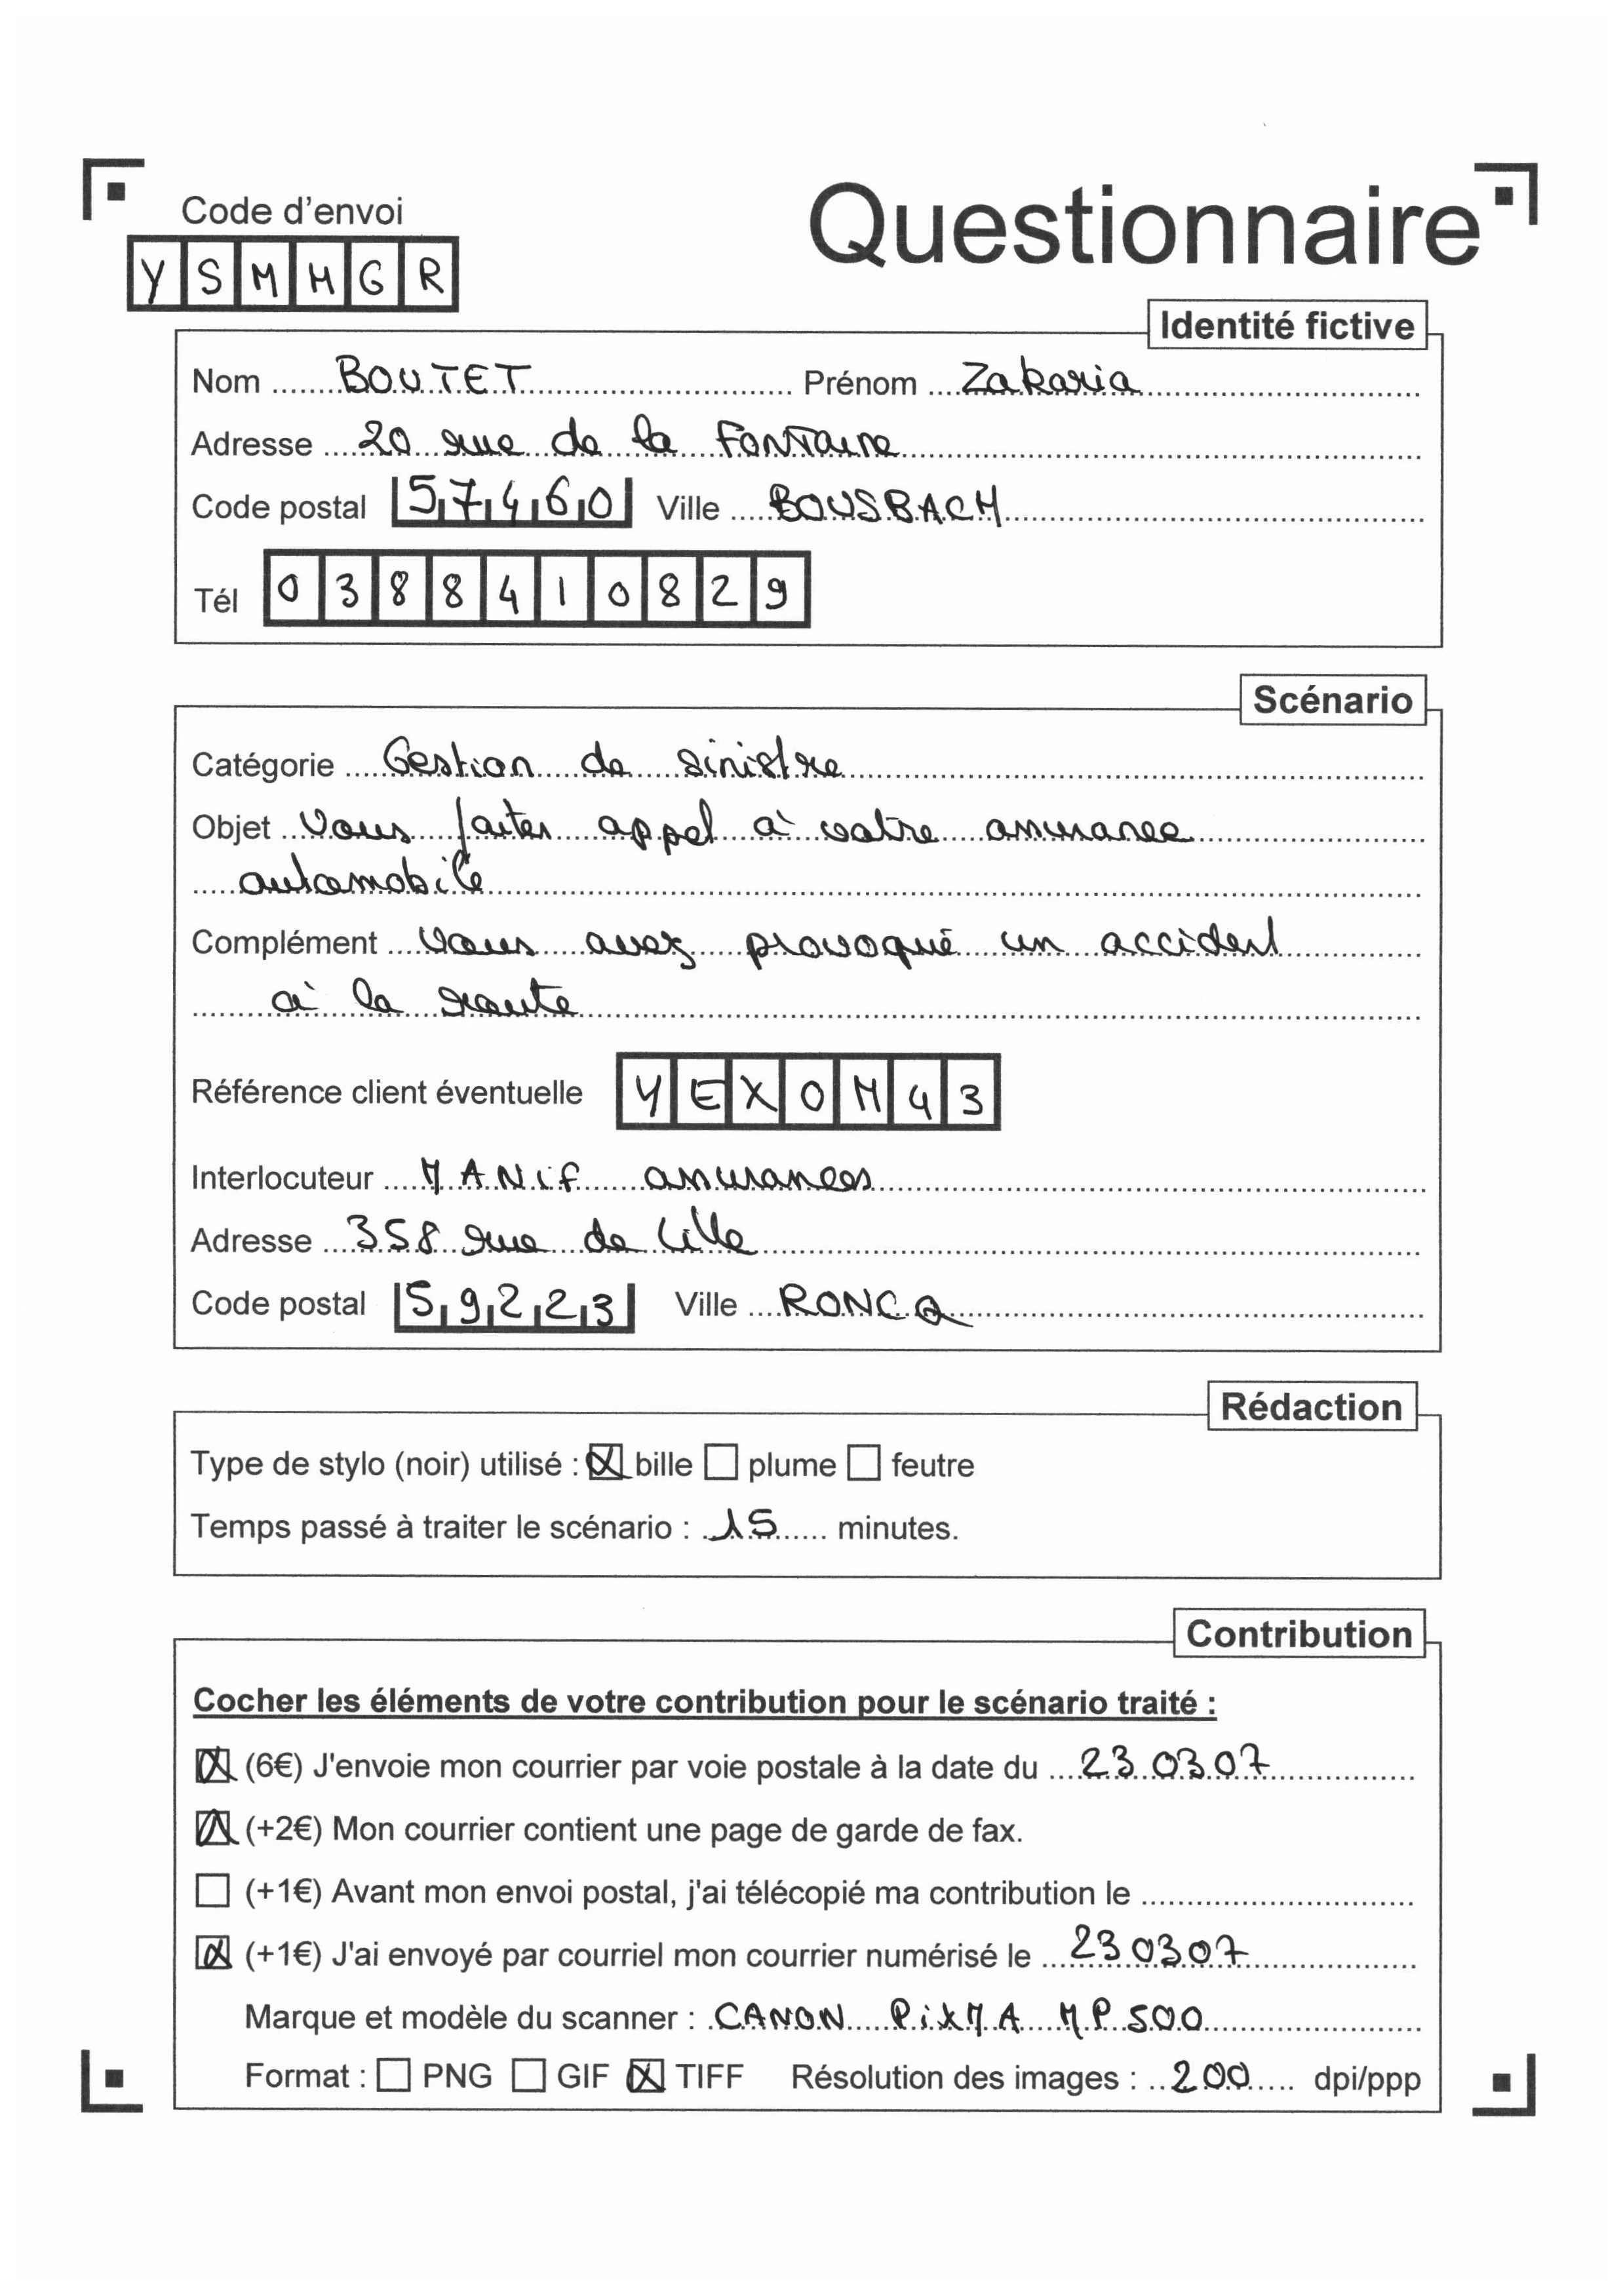 Code d'envoi
YSMHGR
Questionnaire
Identité fictive
Nom BOUTET Prénom Zakaria
Adresse 20 rue de la Fontaine
Code postal 57460 Ville BOUSBACH
Tél 0388410829
Scénario
Catégorie Gestion de sinistre
Objet Vous faites appel à votre assurance
automobile
Complément Vous avez provoqué un accident
à la route
Référence client éventuelle YEXOM43
Interlocuteur MANIF assurances
Adresse 358 rue de Lille
Code postal 59223 Ville RONCQ
Rédaction
Type de stylo (noir) utilisé : bille plume feutre
Temps passé à traiter le scénario : 15 minutes.
Contribution
Cocher les éléments de votre contribution pour le scénario traité :
(6€) J'envoie mon courrier par voie postale à la date du 23 03 07
(+2€) Mon courrier contient une page de garde de fax.
(+1€) Avant mon envoi postal, j'ai télécopié ma contribution le
(+1€) J'ai envoyé par courriel mon courrier numérisé le 23 03 07
Marque et modèle du scanner : CANON PiXMA MP 500
Format : PNG GIF TIFF Résolution des images : 200 dpi/ppp